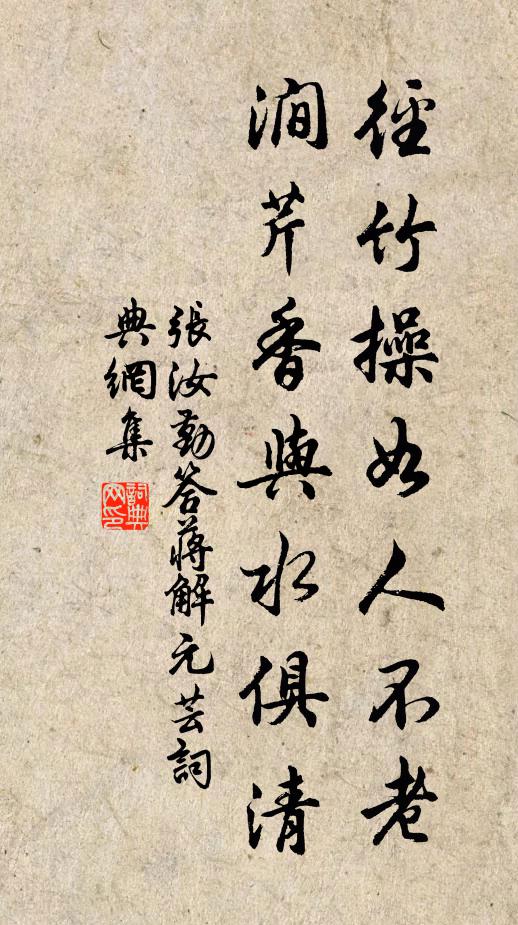 徑竹操如人不老
澗芹香與水俱清
張汝勤答蔣解元芸詞
典網集
詞典
网印